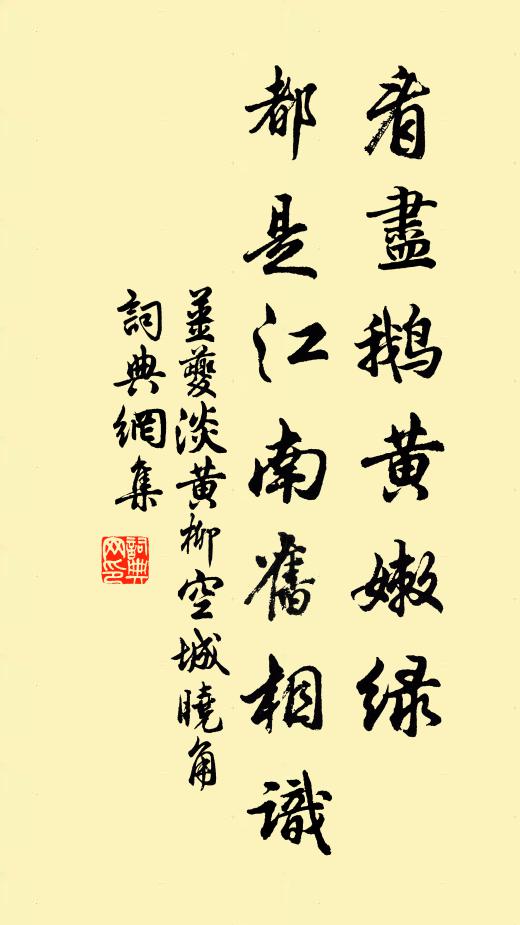 看盡鹅黄嫩绿
都是江南舊相識
姜夔淡黄柳空城曉角
詞典網集
詞典网印